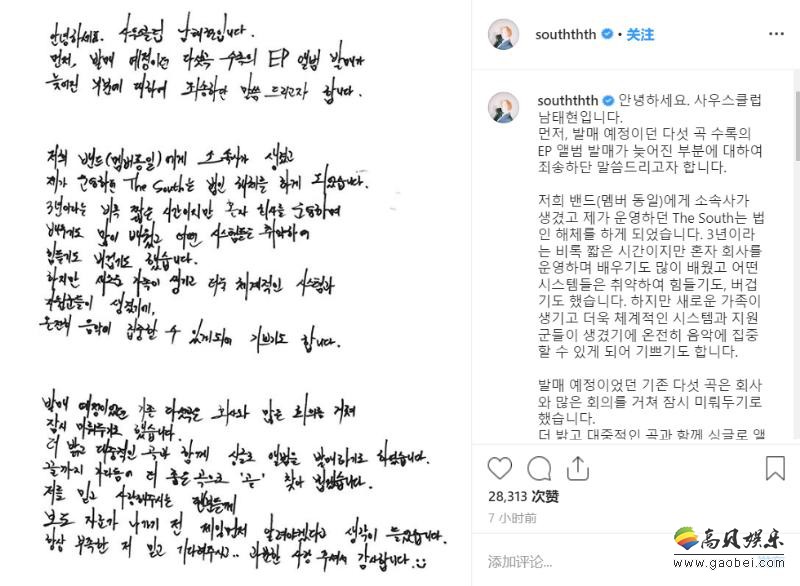 안녕하세요. 사우스클럽 남태현입니다.
먼저, 발매 예정이던 다섯곡 수록의 EP 앨범 발매가
늦어진 부분에 대하여 죄송하단 말씀 드리고자 합니다.
저희 밴드(멤버동일)에게 소속사가 생겼고
제가 운영하던 The South는 법인 해체를 하게 되었습니다.
3년이라는 비록 짧은 시간이지만 혼자 회사를 운영하며
배우기도 많이 배웠고 어떤 시스템들은 취약하여
힘들기도 버겁기도 했습니다.
하지만 새로운 가족이 생기고 더욱 체계적인 시스템과
지원군들이 생겼기에,
온전히 음악에 집중할 수 있게되어 기쁘기도 합니다.
발매 예정이었던 기존 다섯곡은 회사와 많은 회의를 거쳐
잠시 미뤄두기로 했습니다.
더 밝고 대중적인 곡과 함께 싱글로 앨범을 발매하기로 하였습니다.
끝까지 가다듬어 더 좋은 곡으로 '곧' 찾아 뵙겠습니다.
저를 믿고 사랑해주시는 팬분들께
보도 자료가 나가기 전 제일먼저 알려야겠다고 생각이 들었습니다.
항상 부족한 저 믿고 기다려주시고.. 과분한 사랑 주셔서 감사합니다.:)
southth • 关注
southththth 안녕하세요. 사우스클럽
남태현입니다.
먼저, 발매 예정이던 다섯 곡 수록의
EP 앨범 발매가 늦어진 부분에 대하여
죄송하단 말씀드리고자 합니다.
저희 밴드(멤버 동일)에게 소속사가
생겼고 제가 운영하던 The South는 법
인 해체를 하게 되었습니다. 3년이라
는 비록 짧은 시간이지만 혼자 회사를
운영하며 배우기도 많이 배웠고 어떤
시스템들은 취약하여 힘들기도, 버겁
기도 했습니다. 하지만 새로운 가족이
생기고 더욱 체계적인 시스템과 지원
군들이 생겼기에 온전히 음악에 집중
할 수 있게 되어 기쁘기도 합니다.
발매 예정이었던 기존 다섯 곡은 회사
와 많은 회의를 거쳐 잠시 미뤄두기로
했습니다.
더 밝고 대중적인 곡과 함께 싱글로 앨
28,313 次赞
7 小时前
添加评论...
高贝娱乐
www.gaobei.com